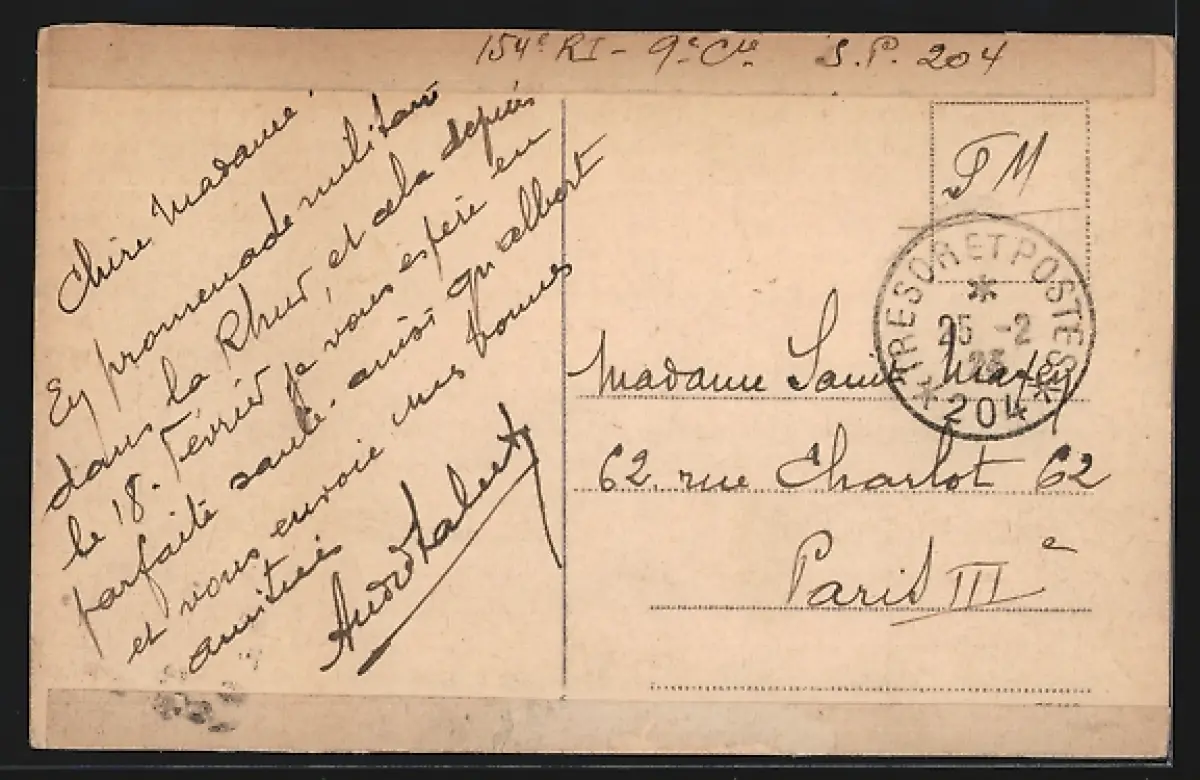 154e RI - 9e Cie S.P. 204
Chère Madame,
En promenade militaire
dans la Rhur, et cela depuis
le 18. Février je vous espère en
parfaite santé. ainsi qu'albert
et vous envoie mes bonnes
amitiés
FM
TRESOR ET POSTES
25 -2
* 204 *
Madame Saint Maxey
62. rue Charlot 62
Paris IIIe